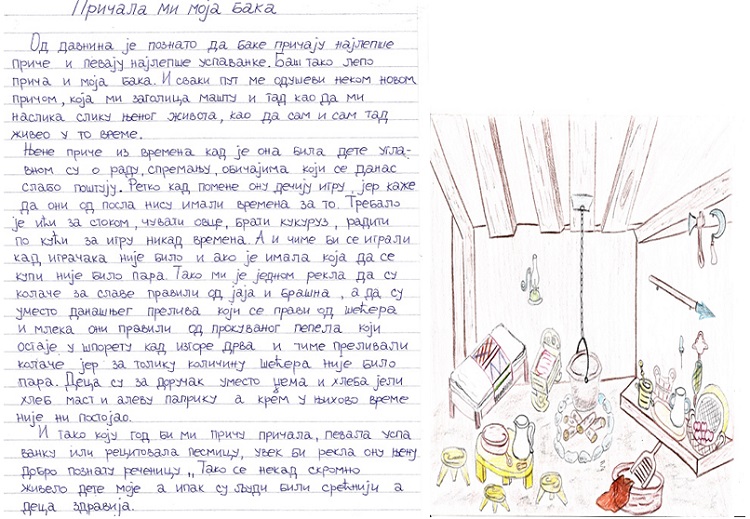 Причала ми моја бака
Од давнина је познато да баке причају најлепше
приче и певају најлепше успаванке. Баш тако лепо
прича и моја бака. И сваки пут ме одушеви неком новом
причом, која ми заголица машту и тад као да ми
наслика слику њеног живота, као да сам и сам тад
живео у то време.
Њене приче из времена кад је она била дете угла-
вном су о раду, спремању, обичајима који се данас
слабо поштују. Ретко кад помене ону дечију игру, јер каже
да они од посла нису имали времена за то. Требало
је ићи за стоком, чувати овце, брати кукуруз, радити
по кући за игру никад времена. А и чиме би се играли
кад играчака није било и ако је имала која да се
купи није било пара. Тако ми је једном рекла да су
колаче за славе правили од јаја и брашна, а да су
уместо данашњег прелива који се прави од шећера
и млека они правили од прокуваног пепела који
остаје у шпорету кад изгоре дрва и тиме преливали
колаче јер за толику количину шећера није било
пара. Деца су за доручак уместо џема и хлеба јели
хлеб маст и алеву паприку а крем у њихово време
није ни постојао.
И тако коју год би ми причу причала, певала успа
ванку или рецитовала песмицу, увек би рекла ону њену
добро познату реченицу „Тако се некад скромно
живело дете моје а ипак су људи били срећнији а
деца здравија.